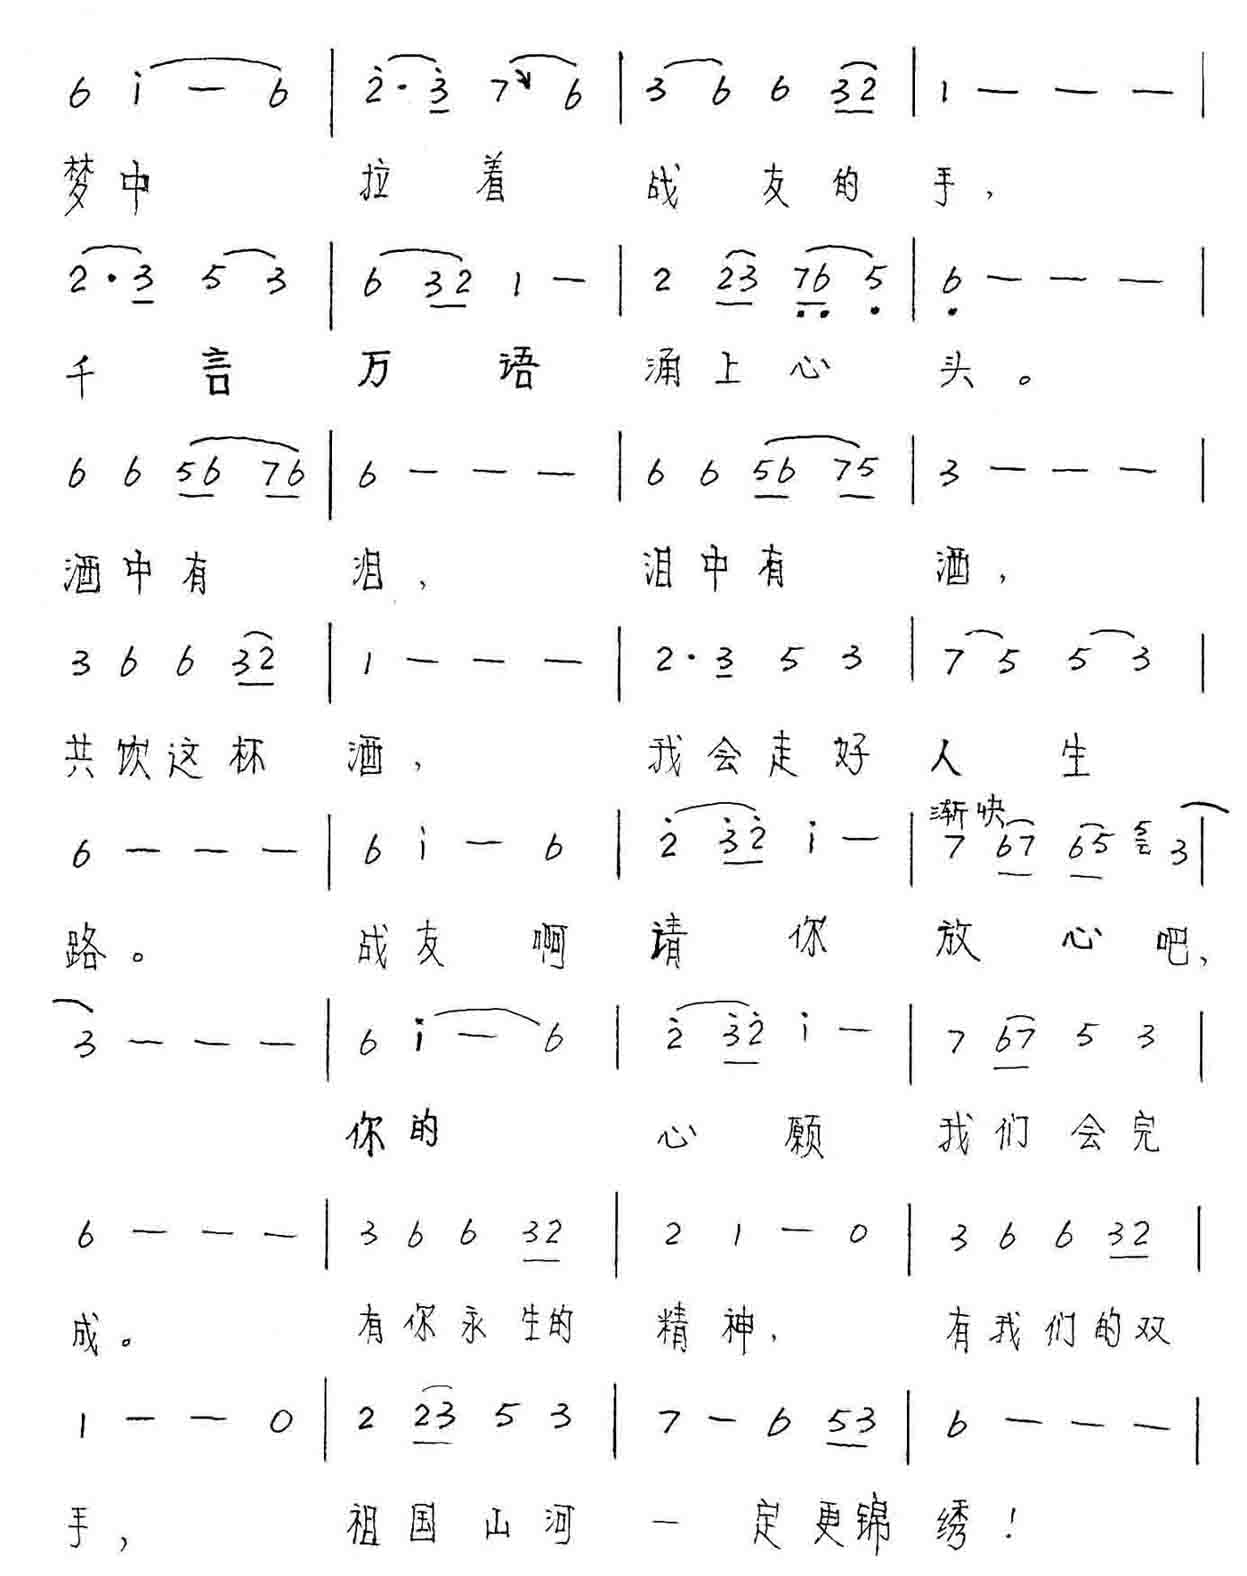 6 i — 6 | 2̇ · 3̇ 7 6 | 3 6 6 32 | 1 — — — |
梦中 拉着 战友的手，
2 · 3 5 3 | 6 32 1 — | 2 23 7̣6̣ 5̣ | 6̣ — — — |
千言万语 涌上心头。
6 6 56 76 | 6 — — — | 6 6 56 75 | 3 — — — |
酒中有泪， 泪中有酒，
3 6 6 32 | 1 — — — | 2 · 3 5 3 | 7 5 5 3 |
共饮这杯酒， 我会走好人生
渐快
6 — — — | 6 i — 6 | 2̇ 3̇2̇ i — | 7 67 65 5 3 |
路。 战友啊 请你放心吧，
3 — — — | 6 i — 6 | 2̇ 3̇2̇ i — | 7 67 5 3 |
你的心愿 我们会完
6 — — — | 3 6 6 32 | 2 1 — 0 | 3 6 6 32 |
成。 有你永生的精神， 有我们的双
1 — — 0 | 2 23 5 3 | 7 — 6 53 | 6 — — — |
手， 祖国山河一定更锦绣！